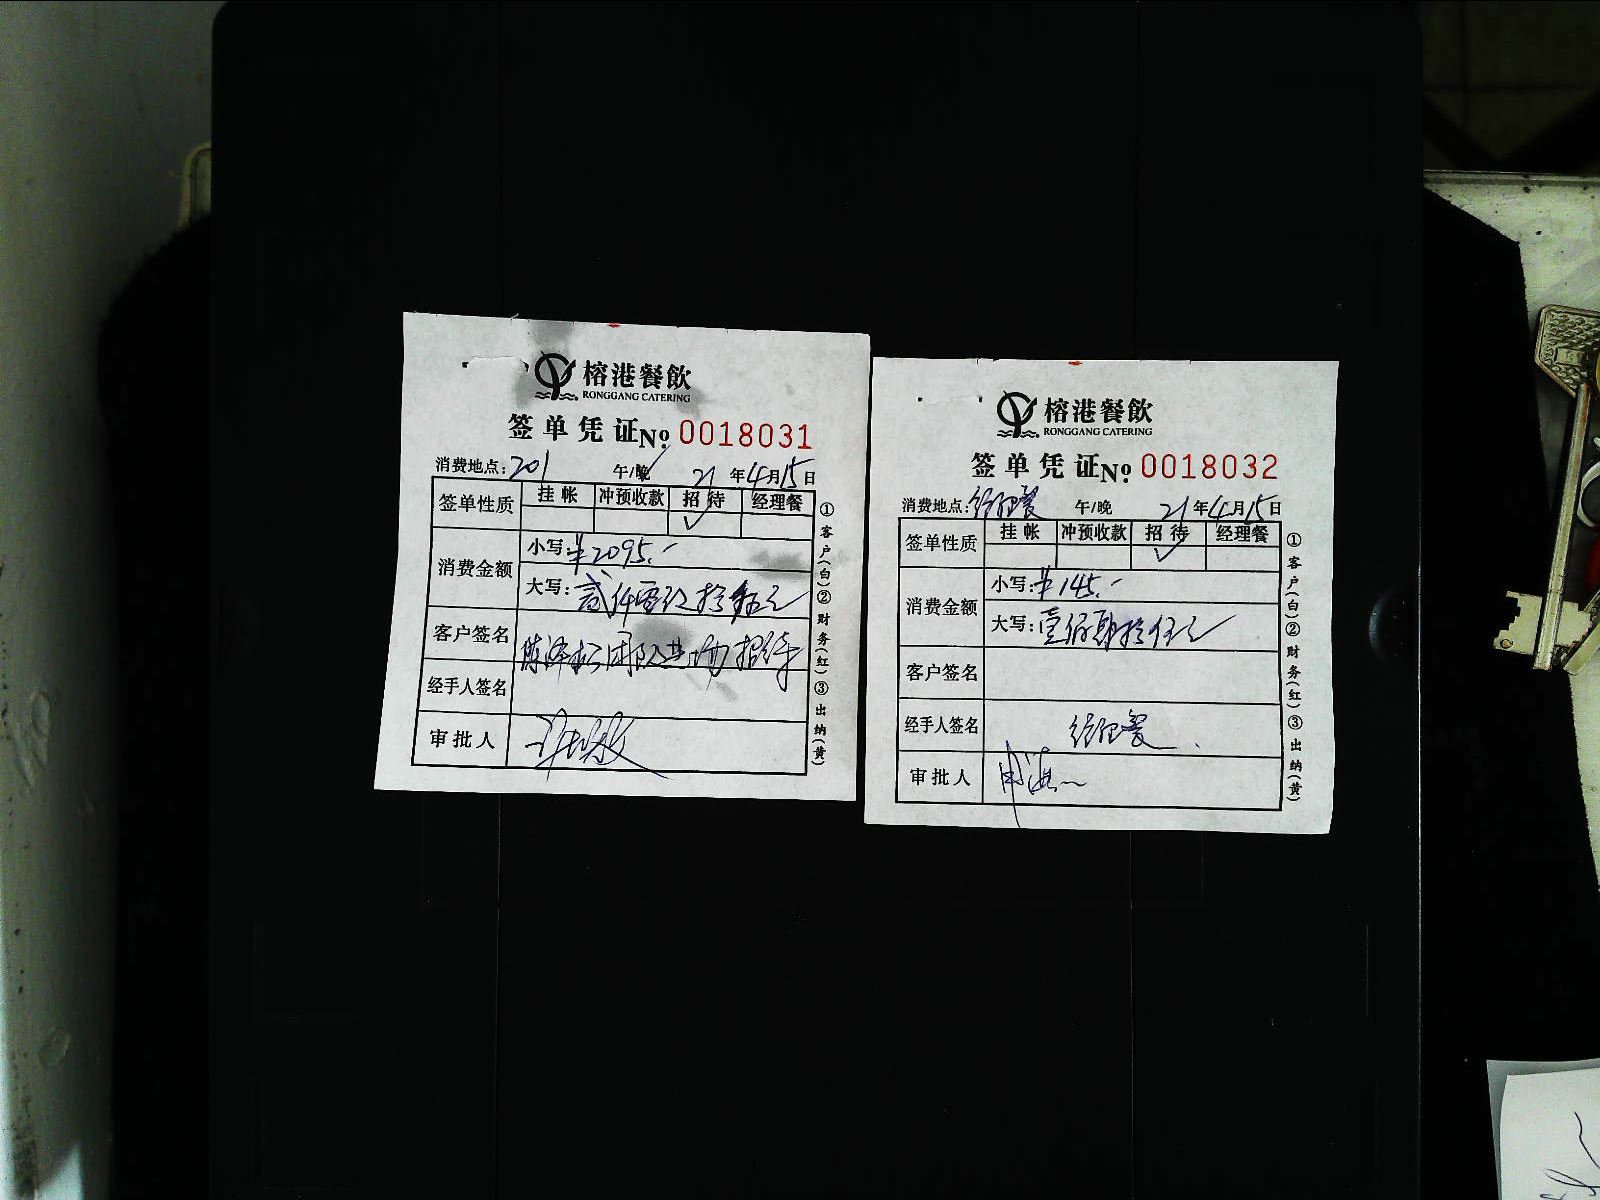 榕港餐飲
RONGGANG CATERING
签单凭证 No. 0018031
消费地点: 201 午/晚 21年4月15日
签单性质 挂帐 冲预收款 招待 经理餐
✓
消费金额 小写: ¥2095.-
大写: 贰仟零玖拾伍元
客户签名 陈泽松团队进场招待
经手人签名
审批人
①客户(白)②财务(红)③出纳(黄)
榕港餐飲
RONGGANG CATERING
签单凭证 No. 0018032
消费地点: 经理餐 午/晚 21年4月15日
签单性质 挂帐 冲预收款 招待 经理餐
✓
消费金额 小写: ¥145.-
大写: 壹佰肆拾伍元
客户签名
经手人签名 经理餐
审批人
①客户(白)②财务(红)③出纳(黄)